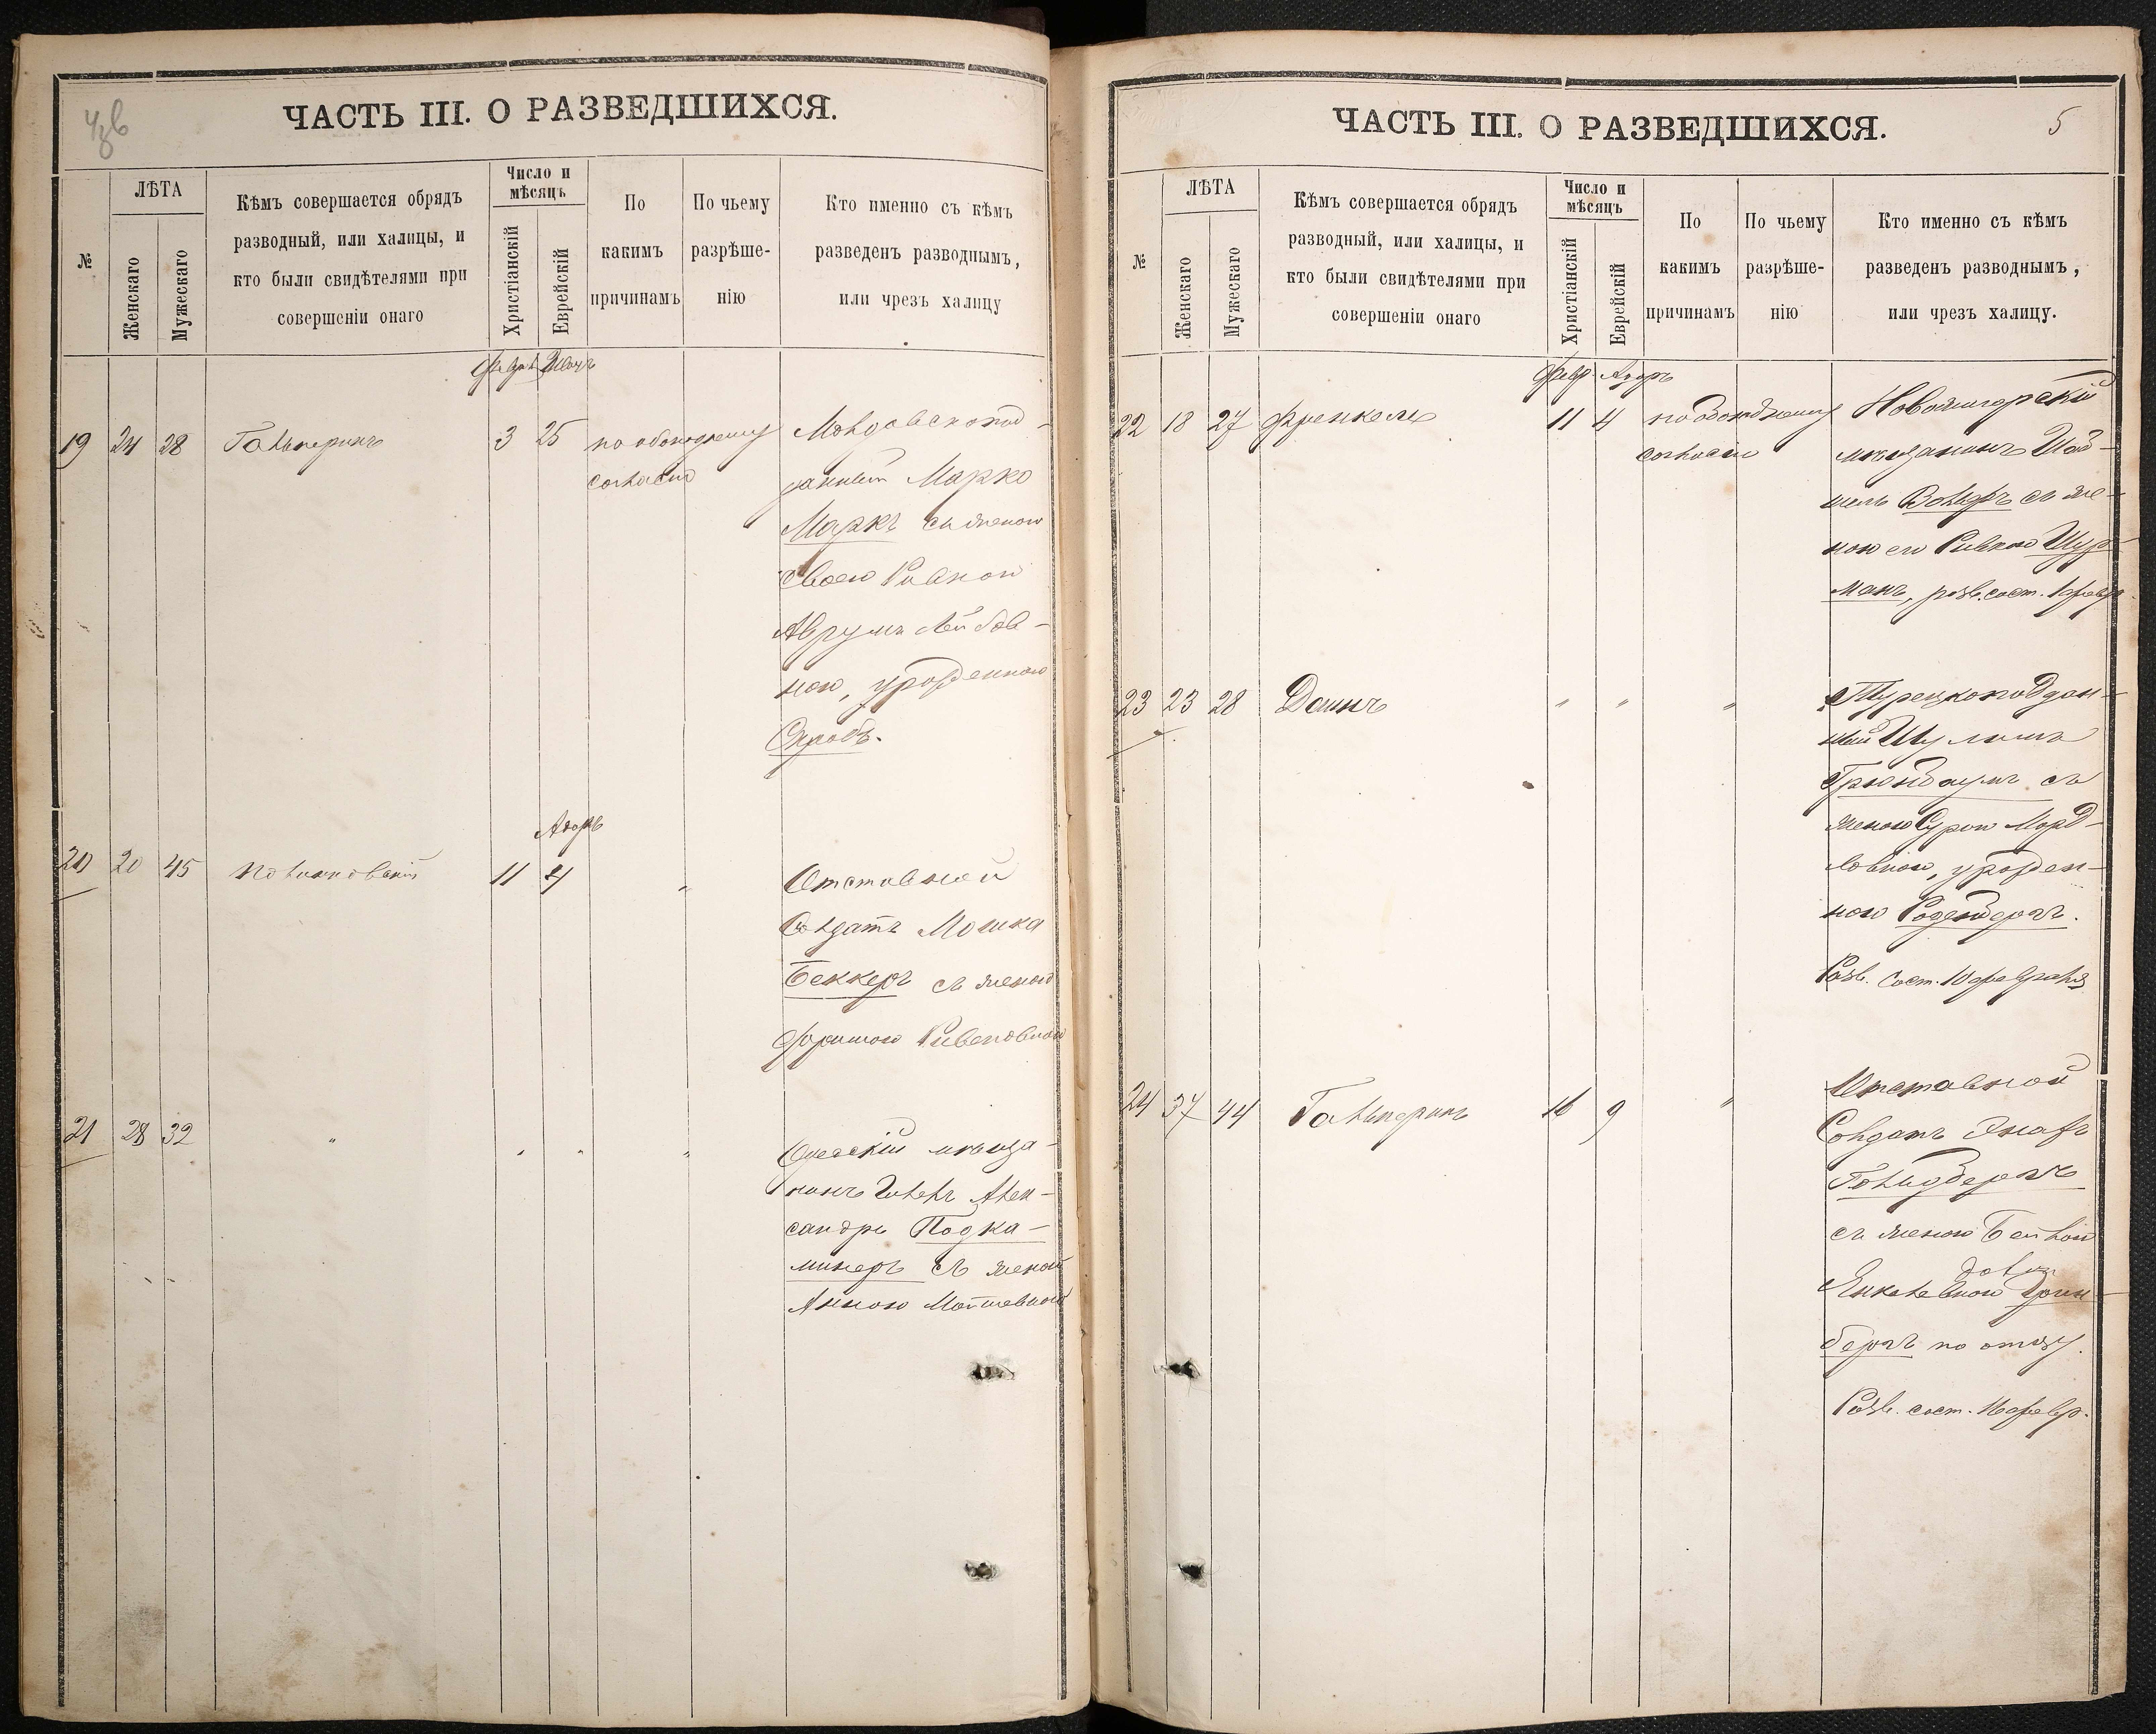 ЧАСТЬ III. О РАЗВЕДШИХСЯ.
№
ЛѢТА
Женскаго
Мужескаго
Кѣмъ совершается обрядъ
разводный, или халицы, и
кто были свидѣтелями при
совершеніи онаго
Число и
мѣсяцъ
Христіанскій
Еврейскій
По
какимъ
причинамъ
По чьему
разрѣше-
нію
Кто именно съ кѣмъ
разведенъ разводнымъ,
или чрезъ халицу
19 24 28 Гальперинъ 3 25 по обоюдному
согласію
Марко
Маркъ съ женою
своею Ривкою
Аврумъ Лейбов-
ною, урожденною
Адаръ
20 20 45 11 4 "
Отставной
Солдатъ Мошка
Беккеръ съ женою
Рывеновною
21 28 32 " " " "
Одесскій мѣща-
нинъ Алек-
сандръ Подка-
минеръ съ женой
Анною
ЧАСТЬ III. О РАЗВЕДШИХСЯ.
5
№
ЛѢТА
Женскаго
Мужескаго
Кѣмъ совершается обрядъ
разводный, или халицы, и
кто были свидѣтелями при
совершеніи онаго
Число и
мѣсяцъ
Христіанскій
Еврейскій
По
какимъ
причинамъ
По чьему
разрѣше-
нію
Кто именно съ кѣмъ
разведенъ разводнымъ,
или чрезъ халицу.
Февр. Адаръ
22 18 27 Френкель 11 4 по обоюдному
согласію
мѣщанинъ
съ же-
ною его Ривкою Шур-
манъ, разв. сост. февр.
23 23 28 Даинъ " " "
Турецкоподдан-
ный Шулимъ
Грюнбаумъ съ
женою Сурою Морд-
ковною, урожден-
ною Розенбергъ.
Разв. сост. 10 февраля
24 37 44 Гальперинъ 16 9 "
Отставной
Солдатъ
Гольдбергъ
съ женою Бейлою
Янкелевною Грин-
бергъ по отцу.
Разв. сост. 16 февр.